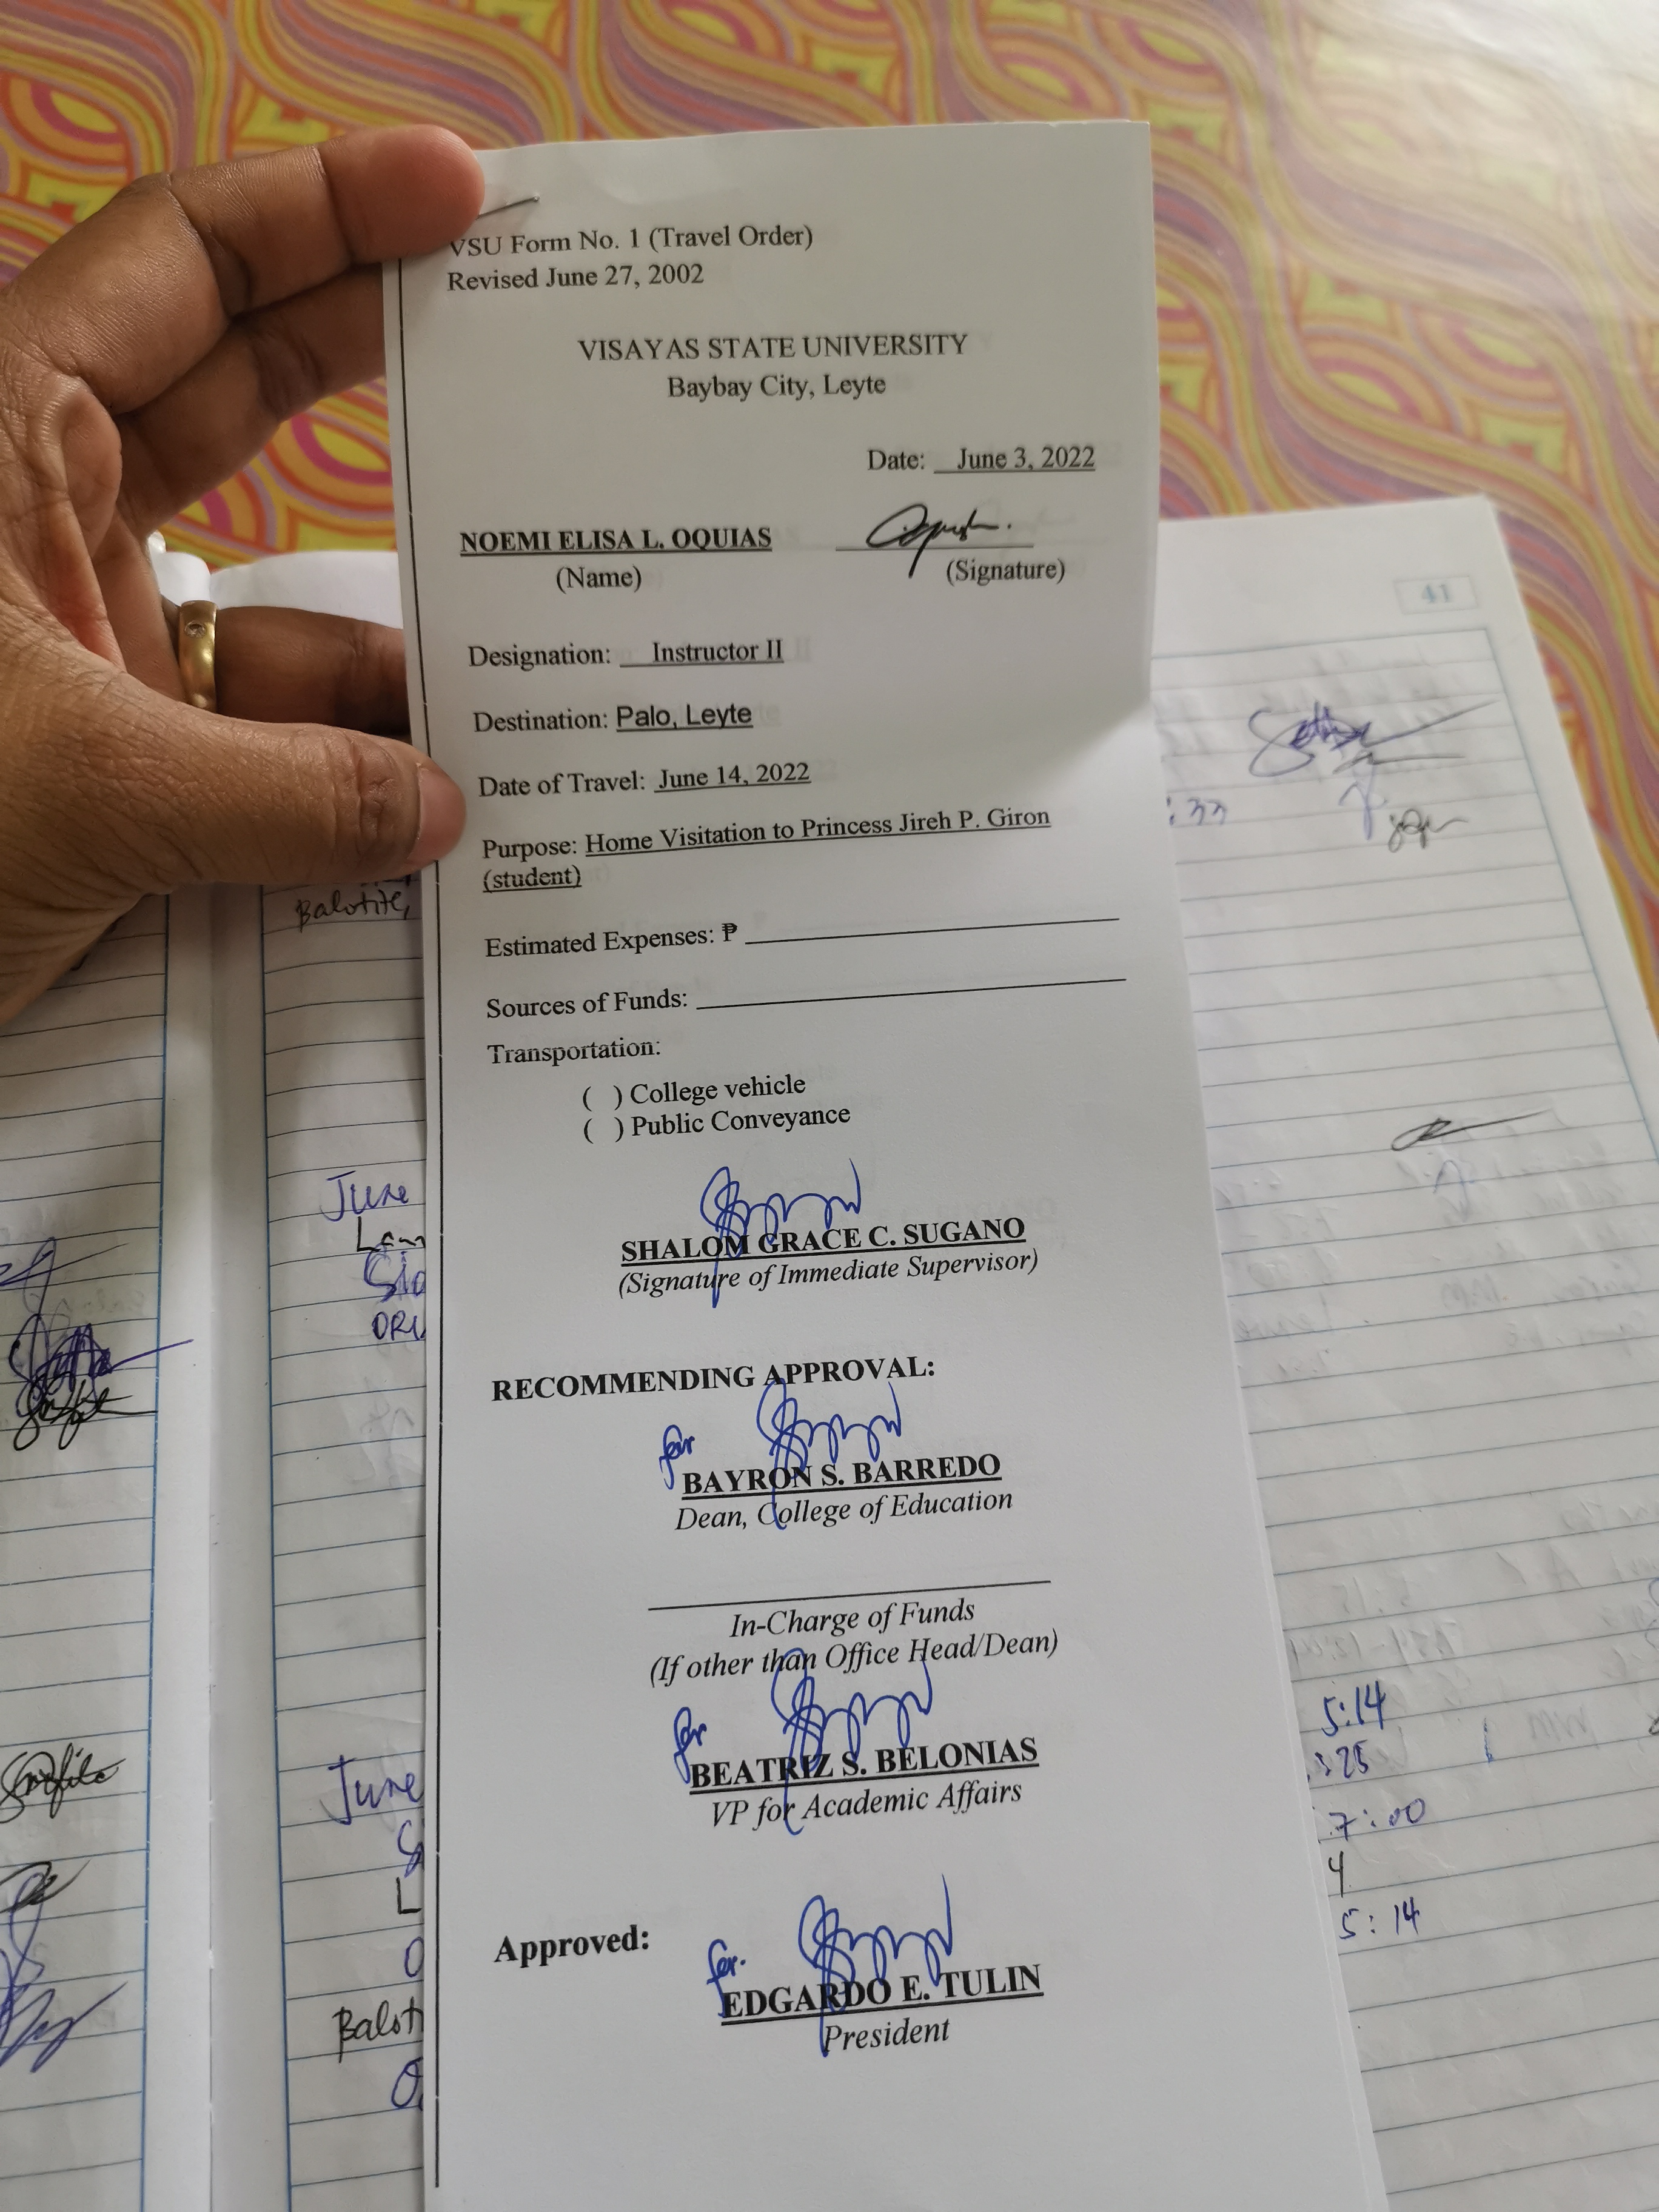 VSU Form No. 1 (Travel Order)
Revised June 27, 2002
VISAYAS STATE UNIVERSITY
Baybay City, Leyte
Date: June 3, 2022
NOEMI ELISA L. OQUIAS
(Name) (Signature)
Designation: Instructor II
Destination: Palo, Leyte
Date of Travel: June 14, 2022
Purpose: Home Visitation to Princess Jireh P. Giron
(student)
Estimated Expenses: ₱
Sources of Funds:
Transportation:
( ) College vehicle
( ) Public Conveyance
SHALOM GRACE C. SUGANO
(Signature of Immediate Supervisor)
RECOMMENDING APPROVAL:
for
BAYRON S. BARREDO
Dean, College of Education
In-Charge of Funds
(If other than Office Head/Dean)
for
BEATRIZ S. BELONIAS
VP for Academic Affairs
Approved:
for.
EDGARDO E. TULIN
President
June
June
41
:33
5:14
:25
7:00
4
5:14